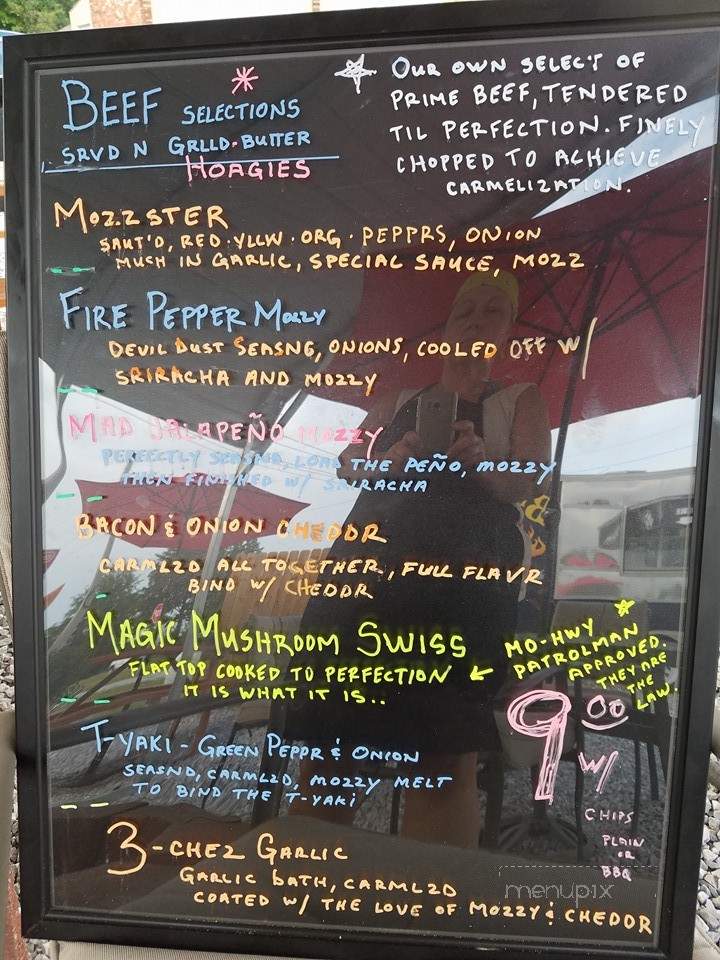 BEEF SELECTIONS
SRVD N GRLLD·BUTTER
HOAGIES
OUR OWN SELECT OF
PRIME BEEF, TENDERED
TIL PERFECTION. FINELY
CHOPPED TO ACHIEVE
CARMELIZATION.
MOZZSTER
SAUT'D, RED·YLLW·ORG·PEPPRS, ONION
MUCH IN GARLIC, SPECIAL SAUCE, MOZZ
FIRE PEPPER MOZZY
DEVIL DUST SEASNG, ONIONS, COOLED OFF W/
SRIRACHA AND MOZZY
MAD JALAPEÑO MOZZY
PERFECTLY SEASND, LOAD THE PEÑO, MOZZY
THEN FINISHED W/ SRIRACHA
BACON & ONION CHEDDR
CARMLZD ALL TOGETHER, FULL FLAVR
BIND W/ CHEDDR
MAGIC MUSHROOM SWISS
FLAT TOP COOKED TO PERFECTION
IT IS WHAT IT IS..
MO-HWY
PATROLMAN
APPROVED.
THEY ARE
THE
LAW.
T-YAKI - GREEN PEPPR & ONION
SEASND, CARMLZD, MOZZY MELT
TO BIND THE T-YAKI
9.00
W/
CHIPS
PLAIN
OR
BBQ
3-CHEZ GARLIC
GARLIC BATH, CARMLZD
COATED W/ THE LOVE OF MOZZY & CHEDDR
menupix